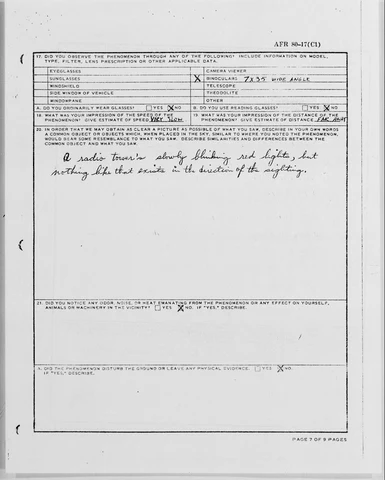 AFR 80-17(C1)
17. DID YOU OBSERVE THE PHENOMENON THROUGH ANY OF THE FOLLOWING? INCLUDE INFORMATION ON MODEL, TYPE, FILTER, LENS PRESCRIPTION OR OTHER APPLICABLE DATA.
EYEGLASSES
CAMERA VIEWER
SUNGLASSES
X BINOCULARS 7X35 WIDE ANGLE
WINDSHIELD
TELESCOPE
SIDE WINDOW OF VEHICLE
THEODOLITE
WINDOWPANE
OTHER
A. DO YOU ORDINARILY WEAR GLASSES? YES X NO
B. DO YOU USE READING GLASSES? YES X NO
18. WHAT WAS YOUR IMPRESSION OF THE SPEED OF THE PHENOMENON? GIVE ESTIMATE OF SPEED VERY SLOW
19. WHAT WAS YOUR IMPRESSION OF THE DISTANCE OF THE PHENOMENON? GIVE ESTIMATE OF DISTANCE FAR AWAY
20. IN ORDER THAT WE MAY OBTAIN AS CLEAR A PICTURE AS POSSIBLE OF WHAT YOU SAW, DESCRIBE IN YOUR OWN WORDS
A COMMON OBJECT OR OBJECTS WHICH, WHEN PLACED IN THE SKY, SIMILAR TO WHERE YOU NOTED THE PHENOMENON,
WOULD BEAR SOME RESEMBLANCE TO WHAT YOU SAW. DESCRIBE SIMILARITIES AND DIFFERENCES BETWEEN THE
COMMON OBJECT AND WHAT YOU SAW.
A radio tower's slowly blinking red lights, but
nothing like that exists in the direction of the sighting.
21. DID YOU NOTICE ANY ODOR, NOISE, OR HEAT EMANATING FROM THE PHENOMENON OR ANY EFFECT ON YOURSELF,
ANIMALS OR MACHINERY IN THE VICINITY? YES X NO. IF "YES," DESCRIBE.
A. DID THE PHENOMENON DISTURB THE GROUND OR LEAVE ANY PHYSICAL EVIDENCE. YES X NO.
IF "YES," DESCRIBE.
PAGE 7 OF 9 PAGES